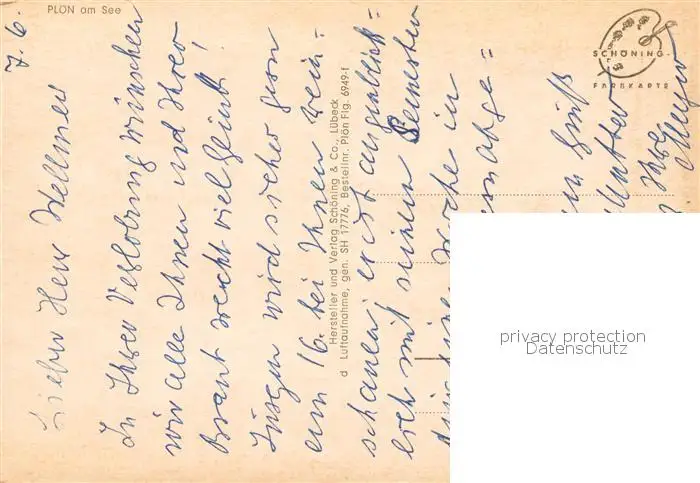 PLÖN am See
7. 6.
Lieber Herr Wellmer
Zu Ihrer Verlobung wünschen
wir alle Ihnen und Ihrer
Braut recht viel Glück!
Jürgen wird sicher gern
am 16. bei Ihnen rein=
schauen, er ist augenblick=
lich mit seinem Semester
eine Woche in
Gruß
Mutter
Ihre
Meyer
Hersteller und Verlag Schöning & Co., Lübeck
d Luftaufnahme, gen. SH 17776, Bestellnr. Plön Flg. 6949-1
SCHÖNING-
FARBKARTE
privacy protection
Datenschutz